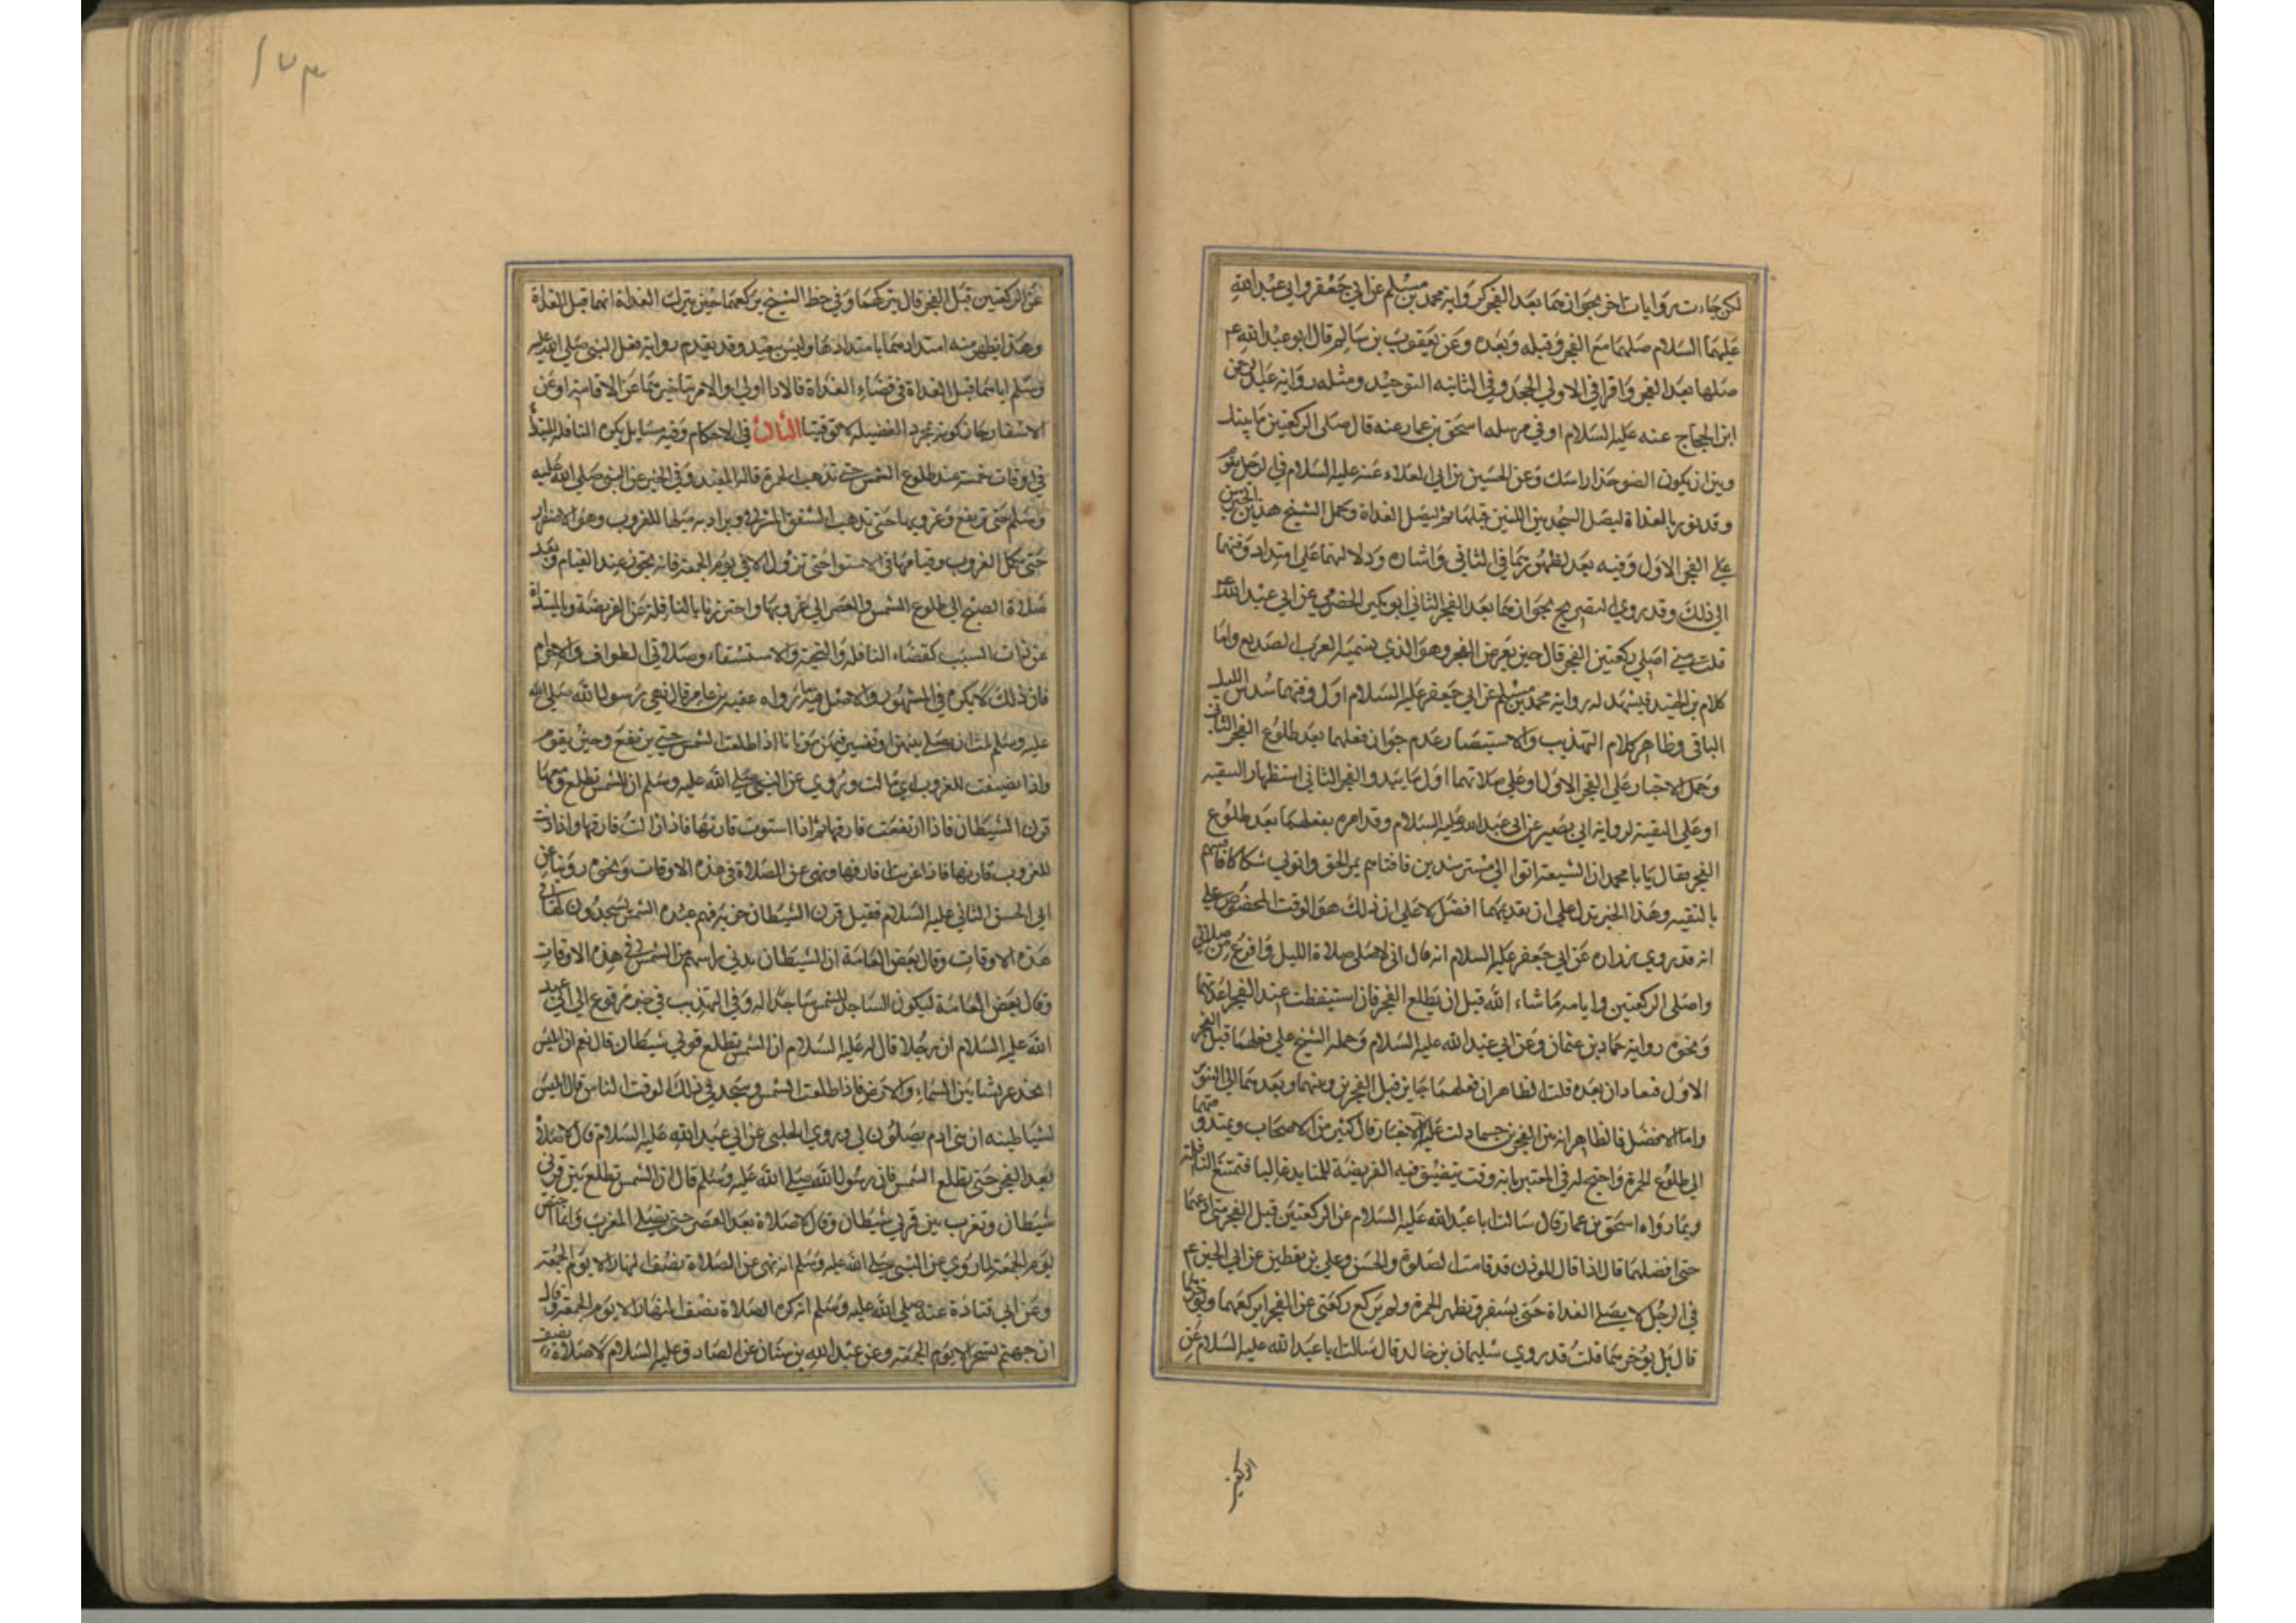 لكن جاءت روايات اخر بجوازهما بعد الفجر كرواية محمد بن مسلم عن ابي جعفر وابي عبد الله
عليهما السلام صلهما مع الفجر وقبله وبعده وعن يعقوب بن سالم قال ابو عبد الله ع
صلها بعد الفجر واقرا في الاولى الحجد وفي الثانيه التوحيد ومثله رواية عبد الرحمن
ابن الحجاج عنه عليه السلام او في مرسله اسحق بن عمار عنه قال صلى الركعتين ما بينك
وبين ان يكون الضو حذا راسك وعن الحسين بن ابي العلاء عنه عليه السلام في الرجل يقوم
وقد نور بالغداة ليصل السجدتين اللتين قبلها ثم ليصل الغداة وحمل الشيخ هذين الخبرين
على الفجر الاول وفيه بعد لظهورهما في الثاني واشاره ودلالتهما على امتداد وقتهما
الى ذلك وقد روي التصريح بجوازهما بعد الفجر الثاني ابو بكير الحضرمي عن ابي عبد الله ع
قلت متى اصلي ركعتين الفجر قال حين يعرض الفجر وهو الذي تسميه العرب الصديع واما
كلام بن الجنيد فيشهد له رواية محمد بن مسلم عن ابي جعفر عليه السلام اول وقتهما سدس الليل
الباقي وظاهر كلام التهذيب والاستبصار عدم جواز فعلهما بعد طلوع الفجر الثاني
وحمل الاخبار على الفجر الاول او على صلاتهما اول ما يبدو الفجر الثاني استظهارا
او على التقية لرواية ابي بصير عن ابي عبد الله عليه السلام وقد امره بفعلهما بعد طلوع
الفجر فقال يابا محمد ان الشيعة اتوا ابي مسترشدين فافتاهم بمر الحق واتوني شكاكا فافتيتهم
بالتقيه وهذا الخبر يدل على ان تقديمهما افضل لا على ان ذلك هو الوقت المخصوص على
انه قد روي زراره عن ابي جعفر عليه السلام انه قال اني لاصلي صلاة الليل وافرغ من صلاتي
واصلي الركعتين وانام ما شاء الله قبل ان يطلع الفجر فان استيقظت عند الفجر اعدتهما
ونحوه رواية حماد بن عثمان وعن ابي عبد الله عليه السلام وحمله الشيخ على فعلهما قبل الفجر
الاول فيعادان بعده قلت الظاهر ان فعلهما جايز قبل الفجرين وبينهما وبعدهما الى
واما الافضل فالظاهر انه بين الفجرين حسما دلت عليه الاخبار قال كثير من الاصحاب ويمتد وقتهما
الى طلوع الحمرة واحتج له في المعتبر بانه وقت يتضيق فيه الفريضة للمتايد غالبا فتمتنع النافلة
وبما رواه اسحق بن عمار قال سالت ابا عبد الله عليه السلام عن الركعتين قبل الفجر متى ادعهما
حتى اقضيهما قال اذا قال الموذن قد قامت الصلوة والحسن وعلي بن يقطين عن ابي الحسن ع
في الرجل لا يصلي الغداة حتى يسفر وتظهر الحمرة ولم يركع ركعتي عن الفجر ايركعهما او يؤخرهما
قال بل يوخرهما قلت قد روي سليمان بن خالد قال سالت ابا عبد الله عليه السلام عن
الركعتين
١٧٣
عن الركعتين قبل الفجر قال يتركهما وفي خط الشيخ يركعهما حين يترك الغداة انهما قبل الغداة
وهذا يظهر منه امتدادهما بامتدادها وليس ببعيد وقد تقدم رواية فعل النبي صلى الله عليه
وسلم اياهما قبل الغداة في قضاء الغداة فالاداء اولى والامر بتاخيرهما عن الاقامة او عن
الاسفار جاز كونه لمجرد الفضيله لا توقيتا الثالث في الاحكام وفيه مسايل يكره النافله المبتداه
في اوقات خمسة عند طلوع الشمس حتى تذهب الحمرة قاله المفيد وفي الخبر عن النبي صلى الله عليه
وسلم حتى ترتفع وغروبها حتى تذهب الشفق المشرقي ويراد به ميلها للغروب وهو الاصفرار
حتى يكمل الغروب وقيامها في الاستوا حتى تزول الا في يوم الجمعة فانه يجوز عند القيام وبعد
صلاة الصبح الى طلوع الشمس والعصر الى غروبها واحترزنا بالنافلة عن الفريضة وبالمبتداة
عن ذات السبب كقضاء النافلة والتحية والاستسقاء وصلاتي الطواف والاحرام
فان ذلك لا يكره في المشهور والاصل فيه ما رواه عقبه بن عامر قال نهى رسول الله صلى الله
عليه وسلم ان نصلي فيهن او نقبر فيهن موتانا اذا طلعت الشمس حتى ترتفع وحين تقوم
واذا تضيفت للغروب اي مالت وروي عن النبي صلى الله عليه وسلم ان الشمس تطلع ومعها
قرن الشيطان فاذا ارتفعت فارقها ثم اذا استوت قارنها فاذا زالت فارقها واذا دنت
للغروب قارنها فاذا غربت فارقها ونهى عن الصلاة في هذه الاوقات ونحوه روينا عن
ابي الحسن الثاني عليه السلام فقيل قرن الشيطان حزبه فهم عبدة الشمس يسجدون لها في
هذه الاوقات وقال بعض العامة ان الشيطان يدني راسه من الشمس في هذه الاوقات
وقال بعض العامة ليكون الساجد للشمس ساجدا له وفي التهذيب في خبر مرفوع الى ابي عبد
الله عليه السلام ان رجلا قال له عليه السلام ان الشمس تطلع قرني شيطان قال نعم ان ابليس
اتخذ عرشا بين السماء والارض فاذا طلعت الشمس وسجد في ذلك الوقت الناس قال ابليس
لشياطينه ان بني ادم يصلون لي وروي الحلبي عن ابي عبد الله عليه السلام قال لا صلاة
بعد الفجر حتى تطلع الشمس فان رسول الله صلى الله عليه وسلم قال ان الشمس تطلع بين قرني
شيطان وتغرب بين قرني شيطان وقال لا صلاة بعد العصر حتى تصلي المغرب وانما اختص
يوم الجمعة لما روي عن النبي صلى الله عليه وسلم انه نهى عن الصلاة نصف النهار الا يوم الجمعة
وعن ابي قتادة عنه صلى الله عليه وسلم انه كره الصلاة نصف النهار الا يوم الجمعة وقال
ان جهنم تسجر الا يوم الجمعة وعن عبد الله بن سنان عن الصادق عليه السلام لا صلاة نصف